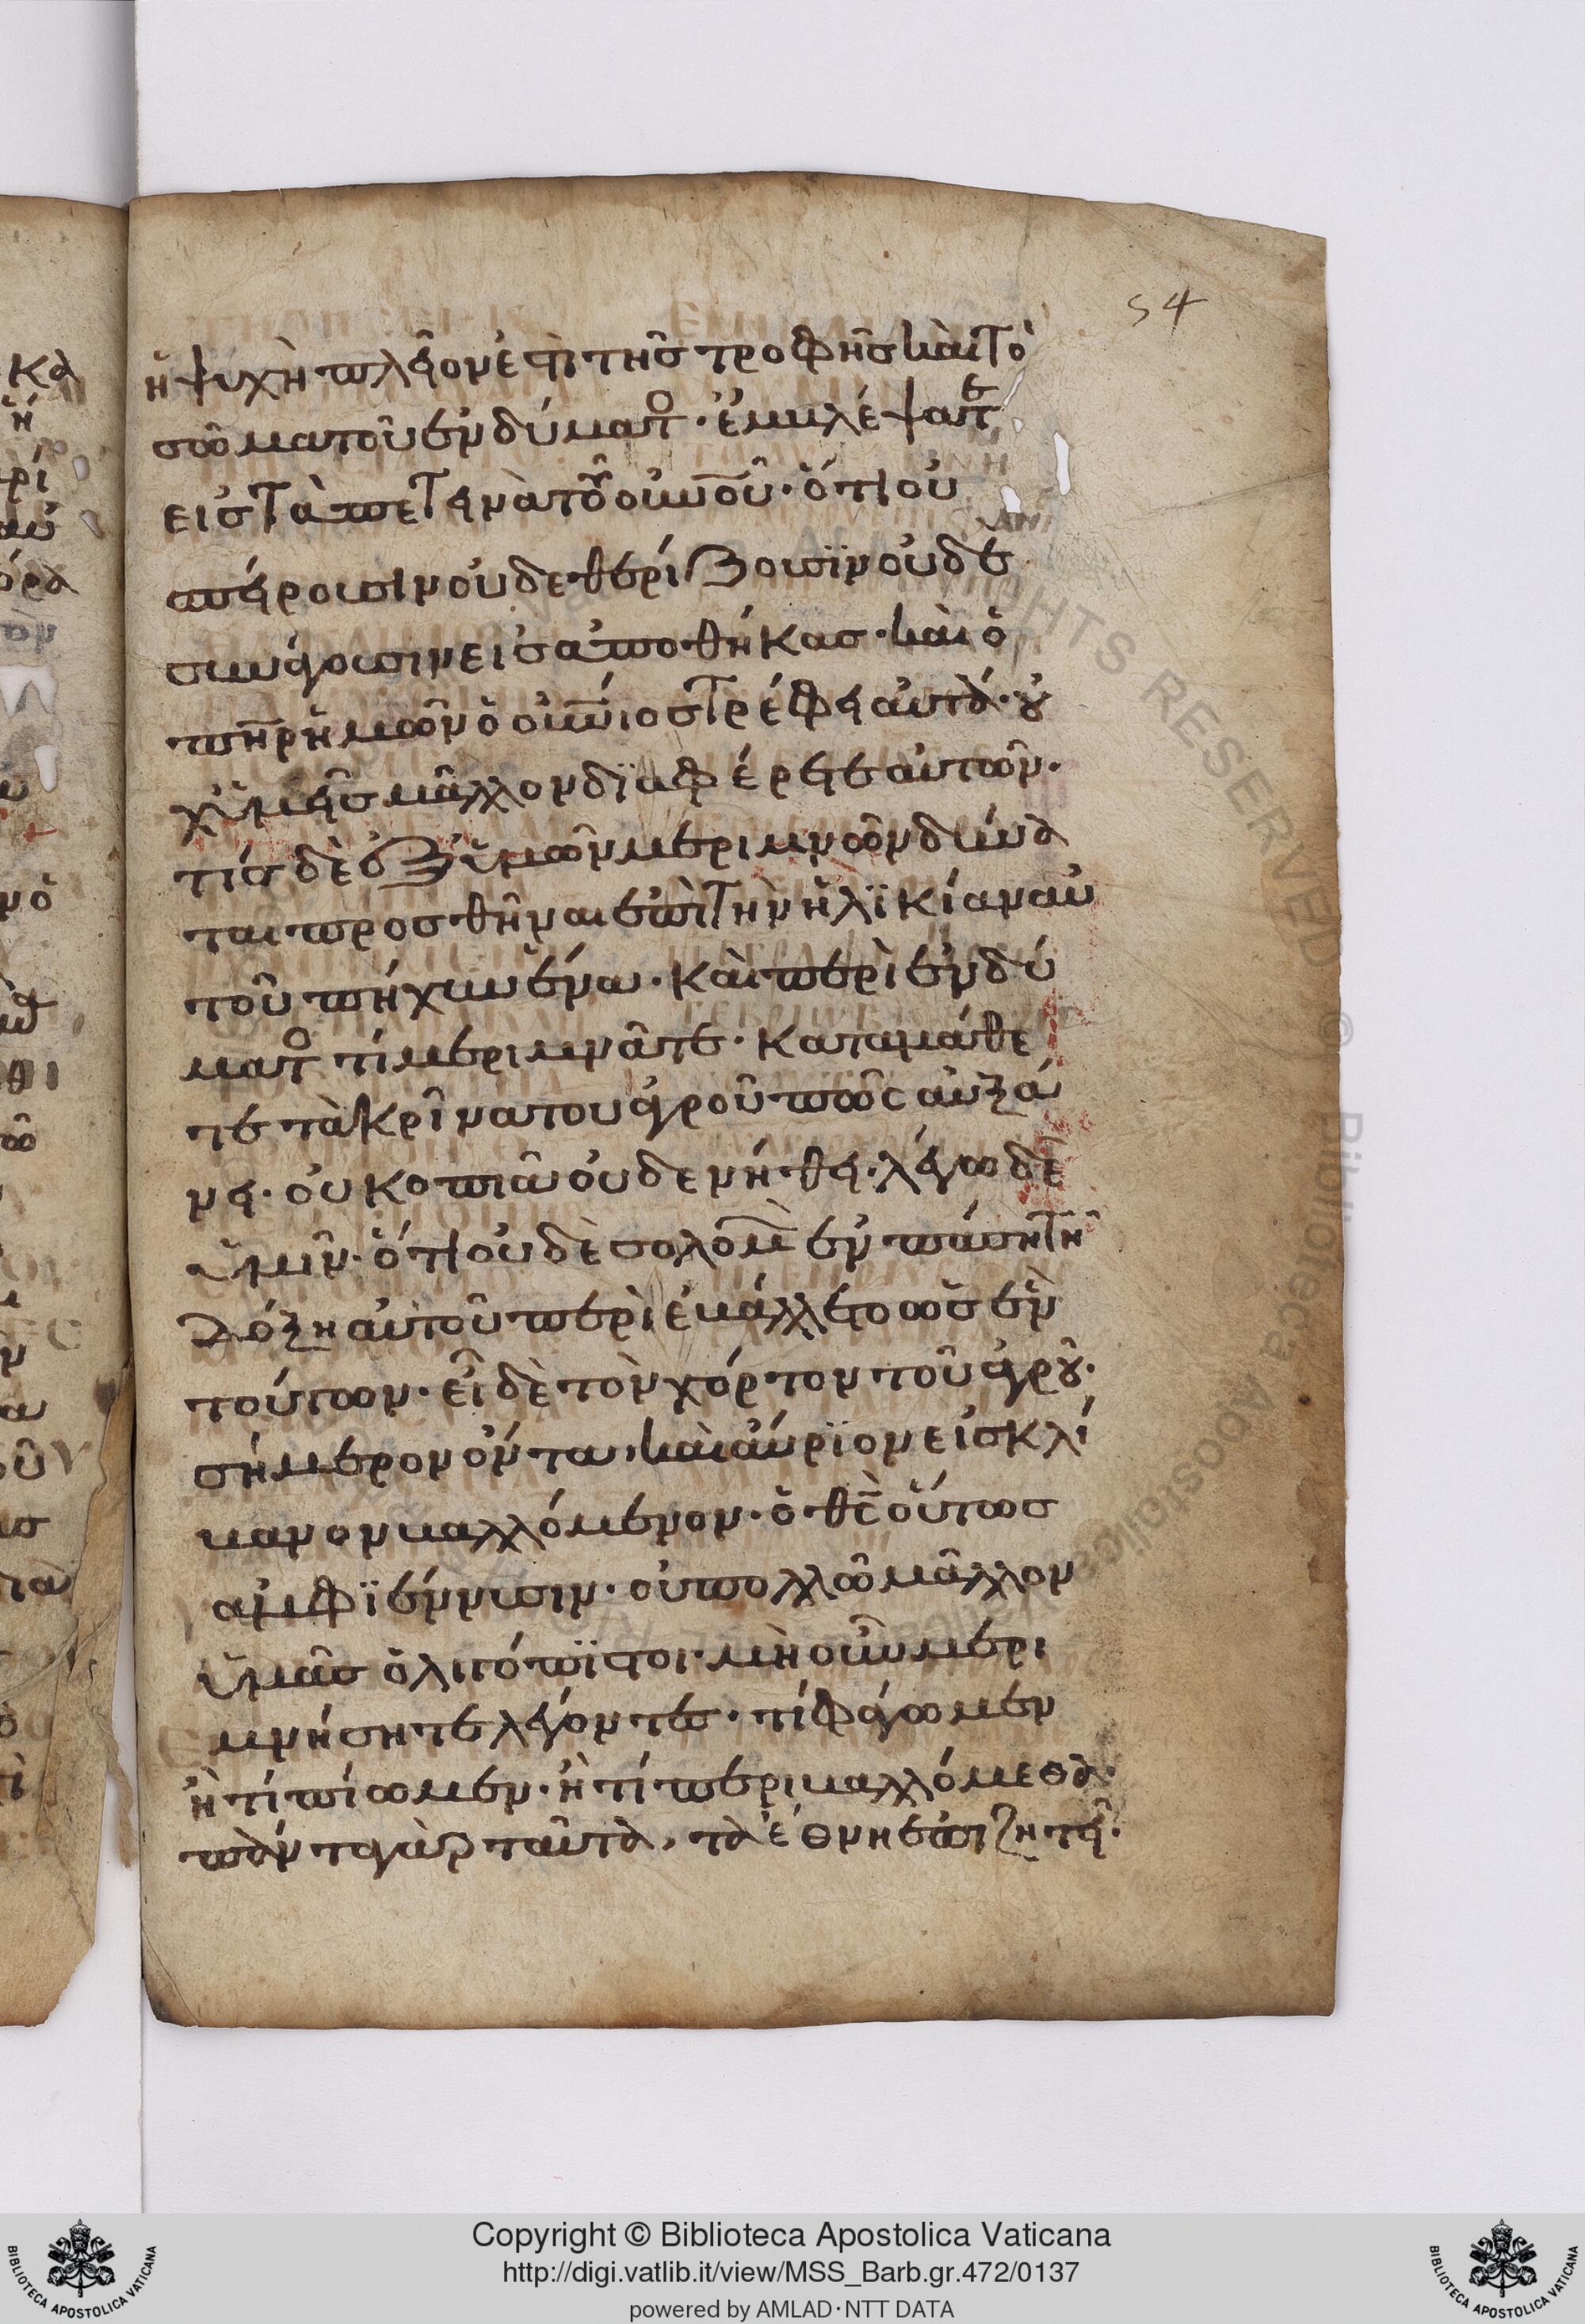 54
ἡ ψυχὴ πλεῖον ἐστὶ τῆς τροφῆς καὶ τὸ
σῶμα τοῦ ἐνδύματο· ἐμβλέψατε
εἰς τὰ πετεινὰ τοῦ οὐνοῦ· ὅτι οὐ
σπείρουσιν οὐδὲ θερίζουσϊν οὐδὲ
συνάγουσιν εἰς ἀποθήκας· καὶ ὁ
πηρ ἡμῶν ὁ οὐνιος τρέφει αὐτά· οὐ
χ ὑμεῖς μᾶλλον δϊαφέρετε αὐτῶν·
τίς δὲ ἐξ ὑμῶν μεριμνῶν δύνα
ται προσθῆναι ἐπὶ τὴν ἡλϊκίαν αὐ
τοῦ πήχυν ἕνα· καὶ περὶ ἐνδύ
ματο τί μεριμνᾶτε· καταμάθε
τε τὰ κρίνα του ἀγροῦ πῶς αὐξά
νει· οὐ κοπιᾶ οὐδὲ νήθει· λέγω δὲ
ὑμῖν· ὅτι οὐδὲ σολομὲ ἐν πάσῃ τῇ
δόξῃ αὐτοῦ περὶεβάλλετο ὡς ἓν
τούτων· εἰ δὲ τὸν χόρτον τοῦ ἀγροῦ·
σήμερον ὄντα, καὶ αὔρϊον εἰς κλί
βανον βαλλόμενον· ὁ θς οὕτως
ἀμφϊέννυσιν· οὐ πολλῶ μᾶλλον
ὑμᾶς ὀλιγόπϊστοι· μὴ οὖν μερι
μνήσητε λέγοντες· τί φάγωμεν
ἢ τί πίωμεν· ἢ τί περιβαλλόμεθα·
πάντα γὰρ ταῦτα, τὰ ἔθνη ἐπιζητεῖ·
Copyright © Biblioteca Apostolica Vaticana
http://digi.vatlib.it/view/MSS_Barb.gr.472/0137
powered by AMLAD·NTT DATA
BIBLIOTECA APOSTOLICA VATICANA
BIBLIOTECA APOSTOLICA VATICANA